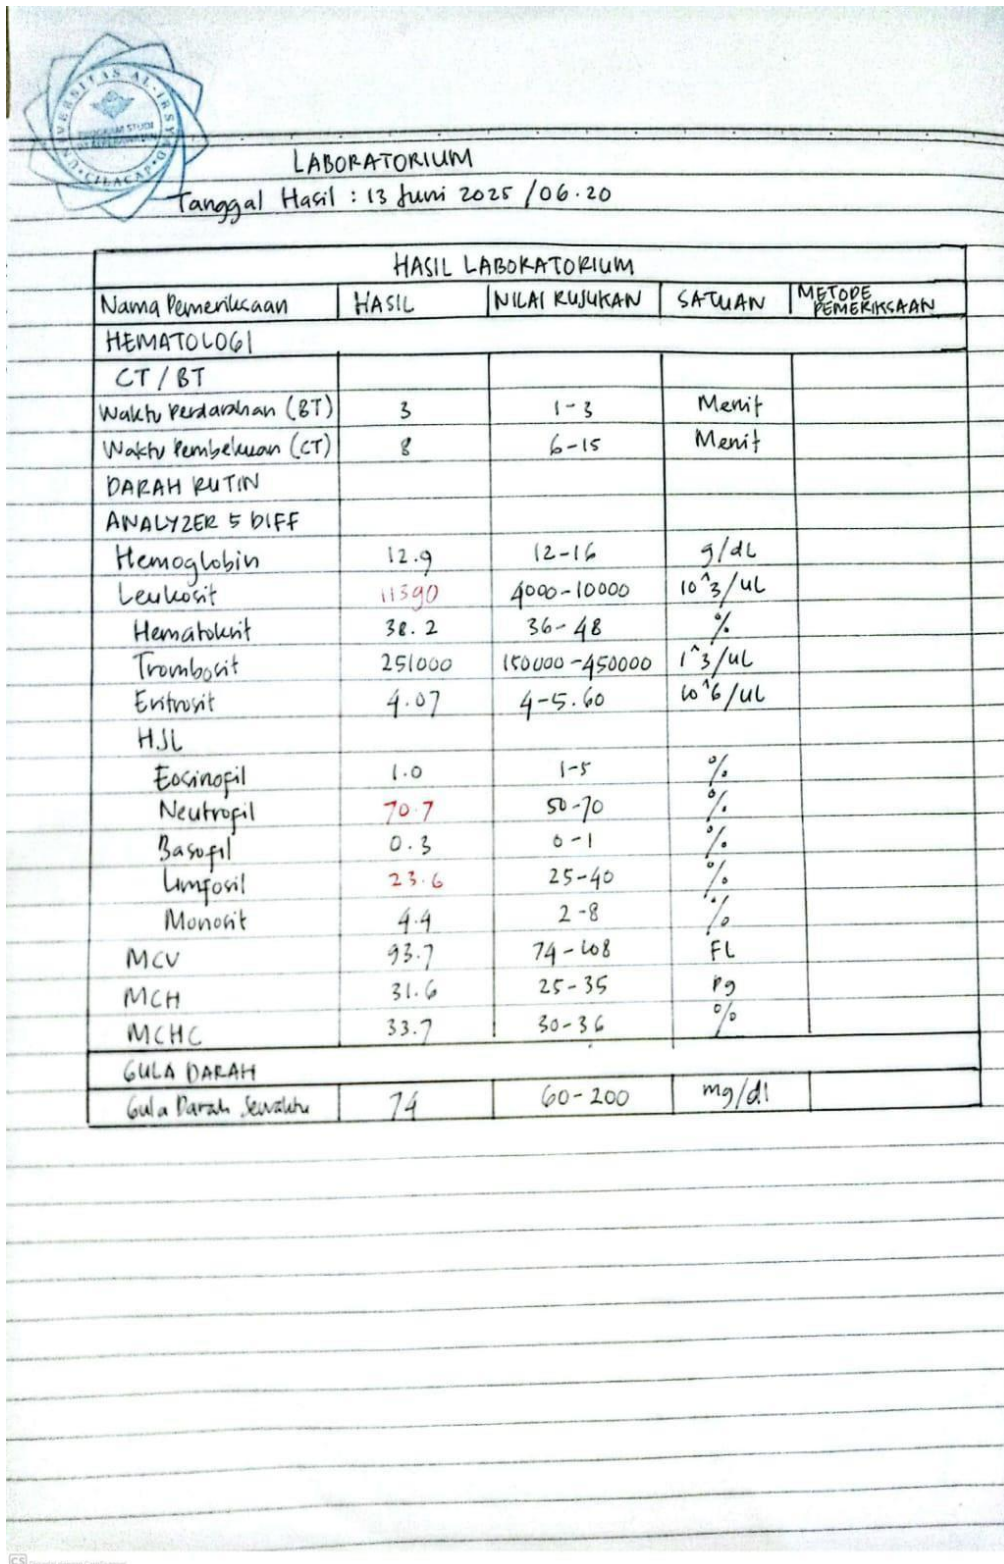 UNIVERSITAS AL-IRSYAD
CILACAP
PROGRAM STUDI
LABORATORIUM
Tanggal Hasil : 13 Juni 2025 / 06.20
HASIL LABORATORIUM
Nama Pemeriksaan HASIL NILAI RUJUKAN SATUAN METODE PEMERIKSAAN
HEMATOLOGI
CT / BT
Waktu Perdarahan (BT) 3 1-3 Menit
Waktu Pembekuan (CT) 8 6-15 Menit
DARAH RUTIN
ANALYZER 5 DIFF
Hemoglobin 12.9 12-16 g/dL
Leukosit 11590 4000-10000 10^3/uL
Hematokrit 38.2 36-48 %
Trombosit 251000 150000-450000 1^3/uL
Eritrosit 4.07 4-5.60 10^6/uL
HJL
Eosinofil 1.0 1-5 %
Neutrofil 70.7 50-70 %
Basofil 0.3 0-1 %
Limfosil 23.6 25-40 %
Monosit 4.4 2-8 %
MCV 93.7 74-108 FL
MCH 31.6 25-35 pg
MCHC 33.7 30-36 %
GULA DARAH
Gula Darah Sewaktu 74 60-200 mg/dl
CS